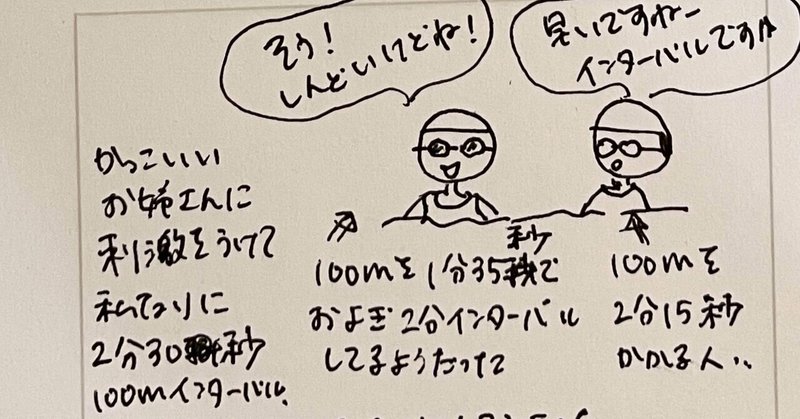 そう!
しんどいけどね!
早いですねー
インターバルですか
かっこいい
お姉さんに
刺激をうけて
私なりに
2分30秒
100mインターバル、
秒
100mを1分35秒で
およぎ2分インターバル
してるようだった
100mを
2分15秒
かかる人..